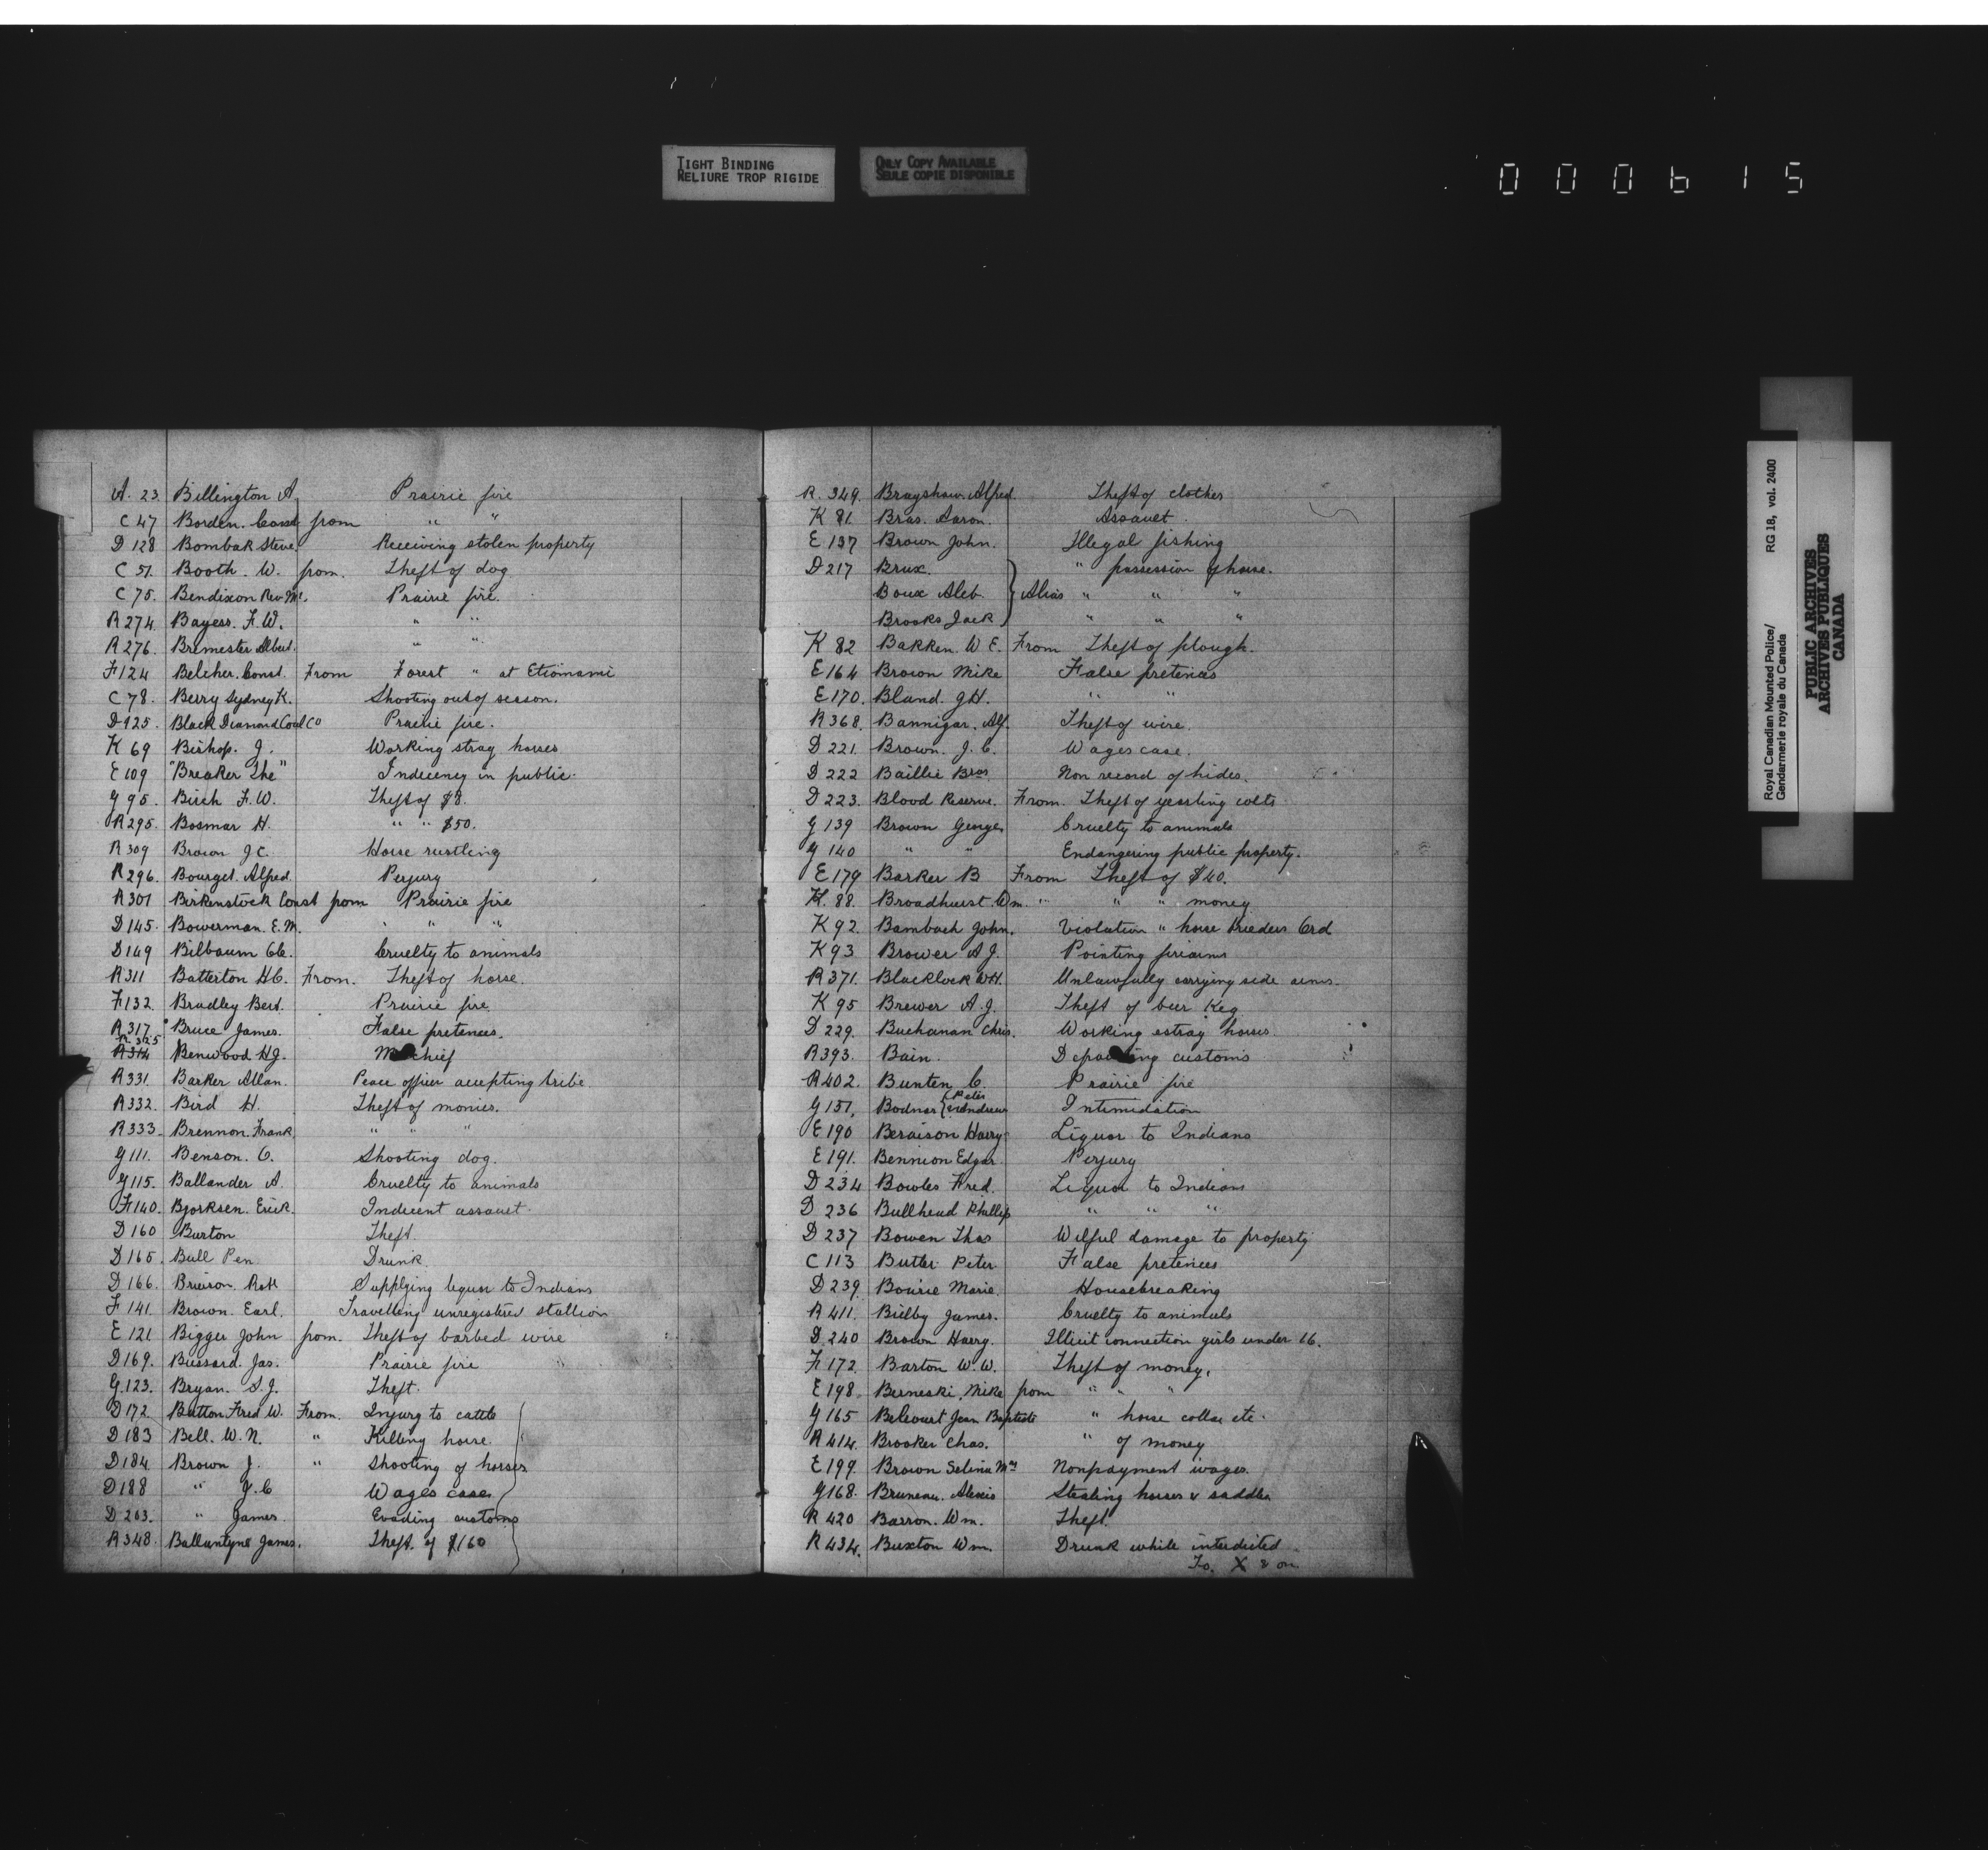 TIGHT BINDING
RELIURE TROP RIGIDE
ONLY COPY AVAILABLE
SEULE COPIE DISPONIBLE
000615
A. 23. Billington A. Prairie fire
C 47 Borden. Const from " "
D 128 Bombak Steve. Receiving stolen property
C 51. Booth. W. from. Theft of dog
C 75. Bendixon Rev. Mr. Prairie fire.
R 274. Bayers. F. W. " "
R 276. Brimester Albert. " "
F 124 Belcher. Const. From Forest " at Etiomami
C 78. Berry Sydney K. Shooting out of season.
D 125. Black Diamond Coal Co Prairie fire.
K 69 Bishop. J. Working stray horses
E 109 "Breaker The" Indecency in public.
G 95. Birch F. W. Theft of $8.
R 295. Bosmar H. " " $50.
R 309 Brown J C. Horse rustling
R 296. Bourget. Alfred. Perjury
R 301 Birkenstock Const from Prairie fire
D 145. Bowerman. E. M. " " "
D 149 Bilbaum Cruelty to animals
R 311 Batterton H C. From. Theft of horse.
F 132. Bradley Bert. Prairie fire
R 317. Bruce James. False pretences.
R 325
R 314 Benwood H J. Mischief
R 331. Barker Allan. Peace officer accepting bribe.
R 332. Bird H. Theft of monies.
R 333. Brennon. Frank " " "
G 111. Benson. C. Shooting dog.
G 115. Ballander A. Cruelty to animals
F 140. Bjorksen. Erick. Indecent assault.
D 160 Burton Theft.
D 165. Bull Pen Drunk.
D 166. Brieison. Robt Supplying liquor to Indians
F 141. Brown. Earl. Travelling unregistered stallion
E 121. Bigger John from. Theft of barbed wire
D 169. Bussard. Jas. Prairie fire
G. 123. Bryan. S. J. Theft.
D 172. Button Fred W. From. Injury to cattle
D 183 Bell. W. N. " Killing horse.
D 184 Brown J. " Shooting of horses
D 188 " J. C Wages case
D 203. " James. Evading customs
R 348. Ballantyne James. Theft. of $160
R. 349. Brayshaw. Alfred. Theft of clothes
K 81. Bras. Aaron. Assault.
E 137 Brown John. Illegal fishing
D 217 Brux. " possession of horse.
Boux Aleb. Alias " " "
Brooks Jack " " "
K 82 Bakken. W E. From Theft of plough.
E 164 Brown Mike False pretences
E 170. Bland. J H. " "
R 368. Bannigar. Alf. Theft of wire.
D 221. Brown. J. C. Wages case.
D 222 Baillie Bros Non record of hides.
D 223. Blood Reserve. From. Theft of yearling colts.
G 139 Brown George Cruelty to animals
G 140 " " Endangering public property.
E 179 Barker B From Theft of $40.
K. 88. Broadhurst. Wm. " " " money
K 92. Bambach John. Violation " horse Breeders Ord
K 93 Brower A J. Pointing firearms
R 371. Blacklock W H. Unlawfully carrying side arms.
K 95 Brewer A. J. Theft of beer keg
D 229. Buchanan Chris. Working estray horses
R 393. Bain. customs
R 402. Bunten C. Prairie fire
G 151, Bodnar {Peter Andrew Intimidation
E 190 Beraison Harry Liquor to Indians
E 191. Bennion Edgar. Perjury
D 234 Bowles Fred. Liquor to Indians
D 236 Bullhead Phillip " " "
D 237 Bowen Thos Wilful damage to property
C 113 Butler Peter False pretences
D 239. Bourie Marie. Housebreaking
R 411. Bielby James. Cruelty to animals
D. 240 Brown Harry. Illicit connection girls under 16.
F 172. Barton W. W. Theft of money.
E 198. Berneski. Mike from " " "
G 165 Belcourt Jean Baptiste " horse collar etc.
R 414. Brooker Chas. " of money
E 199. Brown Selina Mrs Nonpayment wages.
G 168. Bruneau. Alexis Stealing horses & saddles
R 420 Barron. Wm. Theft.
R 434. Buxton Wm. Drunk while interdicted.
Fo. X & on
Royal Canadian Mounted Police/
Gendarmerie royale du Canada
RG 18, vol. 2400
PUBLIC ARCHIVES
ARCHIVES PUBLIQUES
CANADA